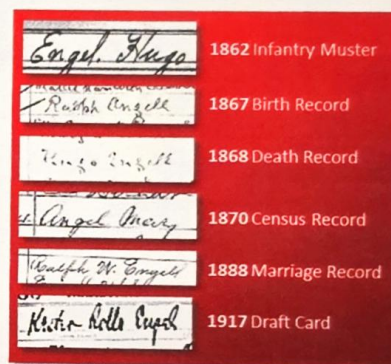 Engel. Hugo
1862 Infantry Muster
Ralph Angell
1867 Birth Record
Hugo Engell
1868 Death Record
Angel Mary
1870 Census Record
Ralph W. Engels
1888 Marriage Record
Rollo
1917 Draft Card